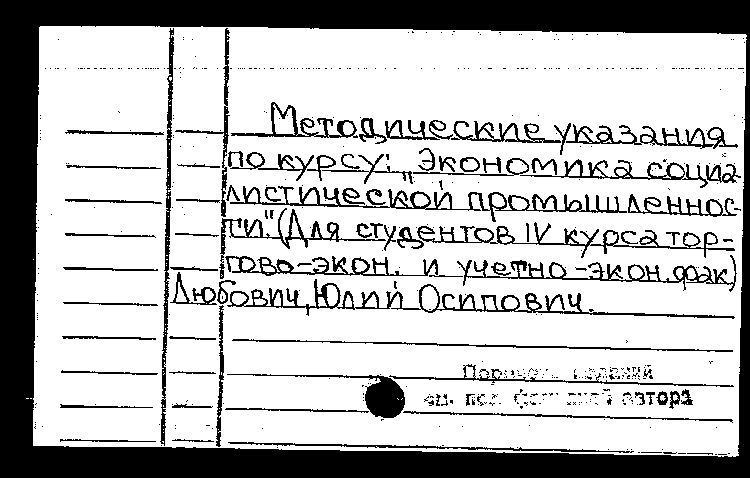 Методические указания
по курсу: „Экономика социа-
листической промышленнос-
ти". (Для студентов IV курса тор-
гово-экон. и учетно-экон. фак)
Любович, Юлий Осипович.
см. автора